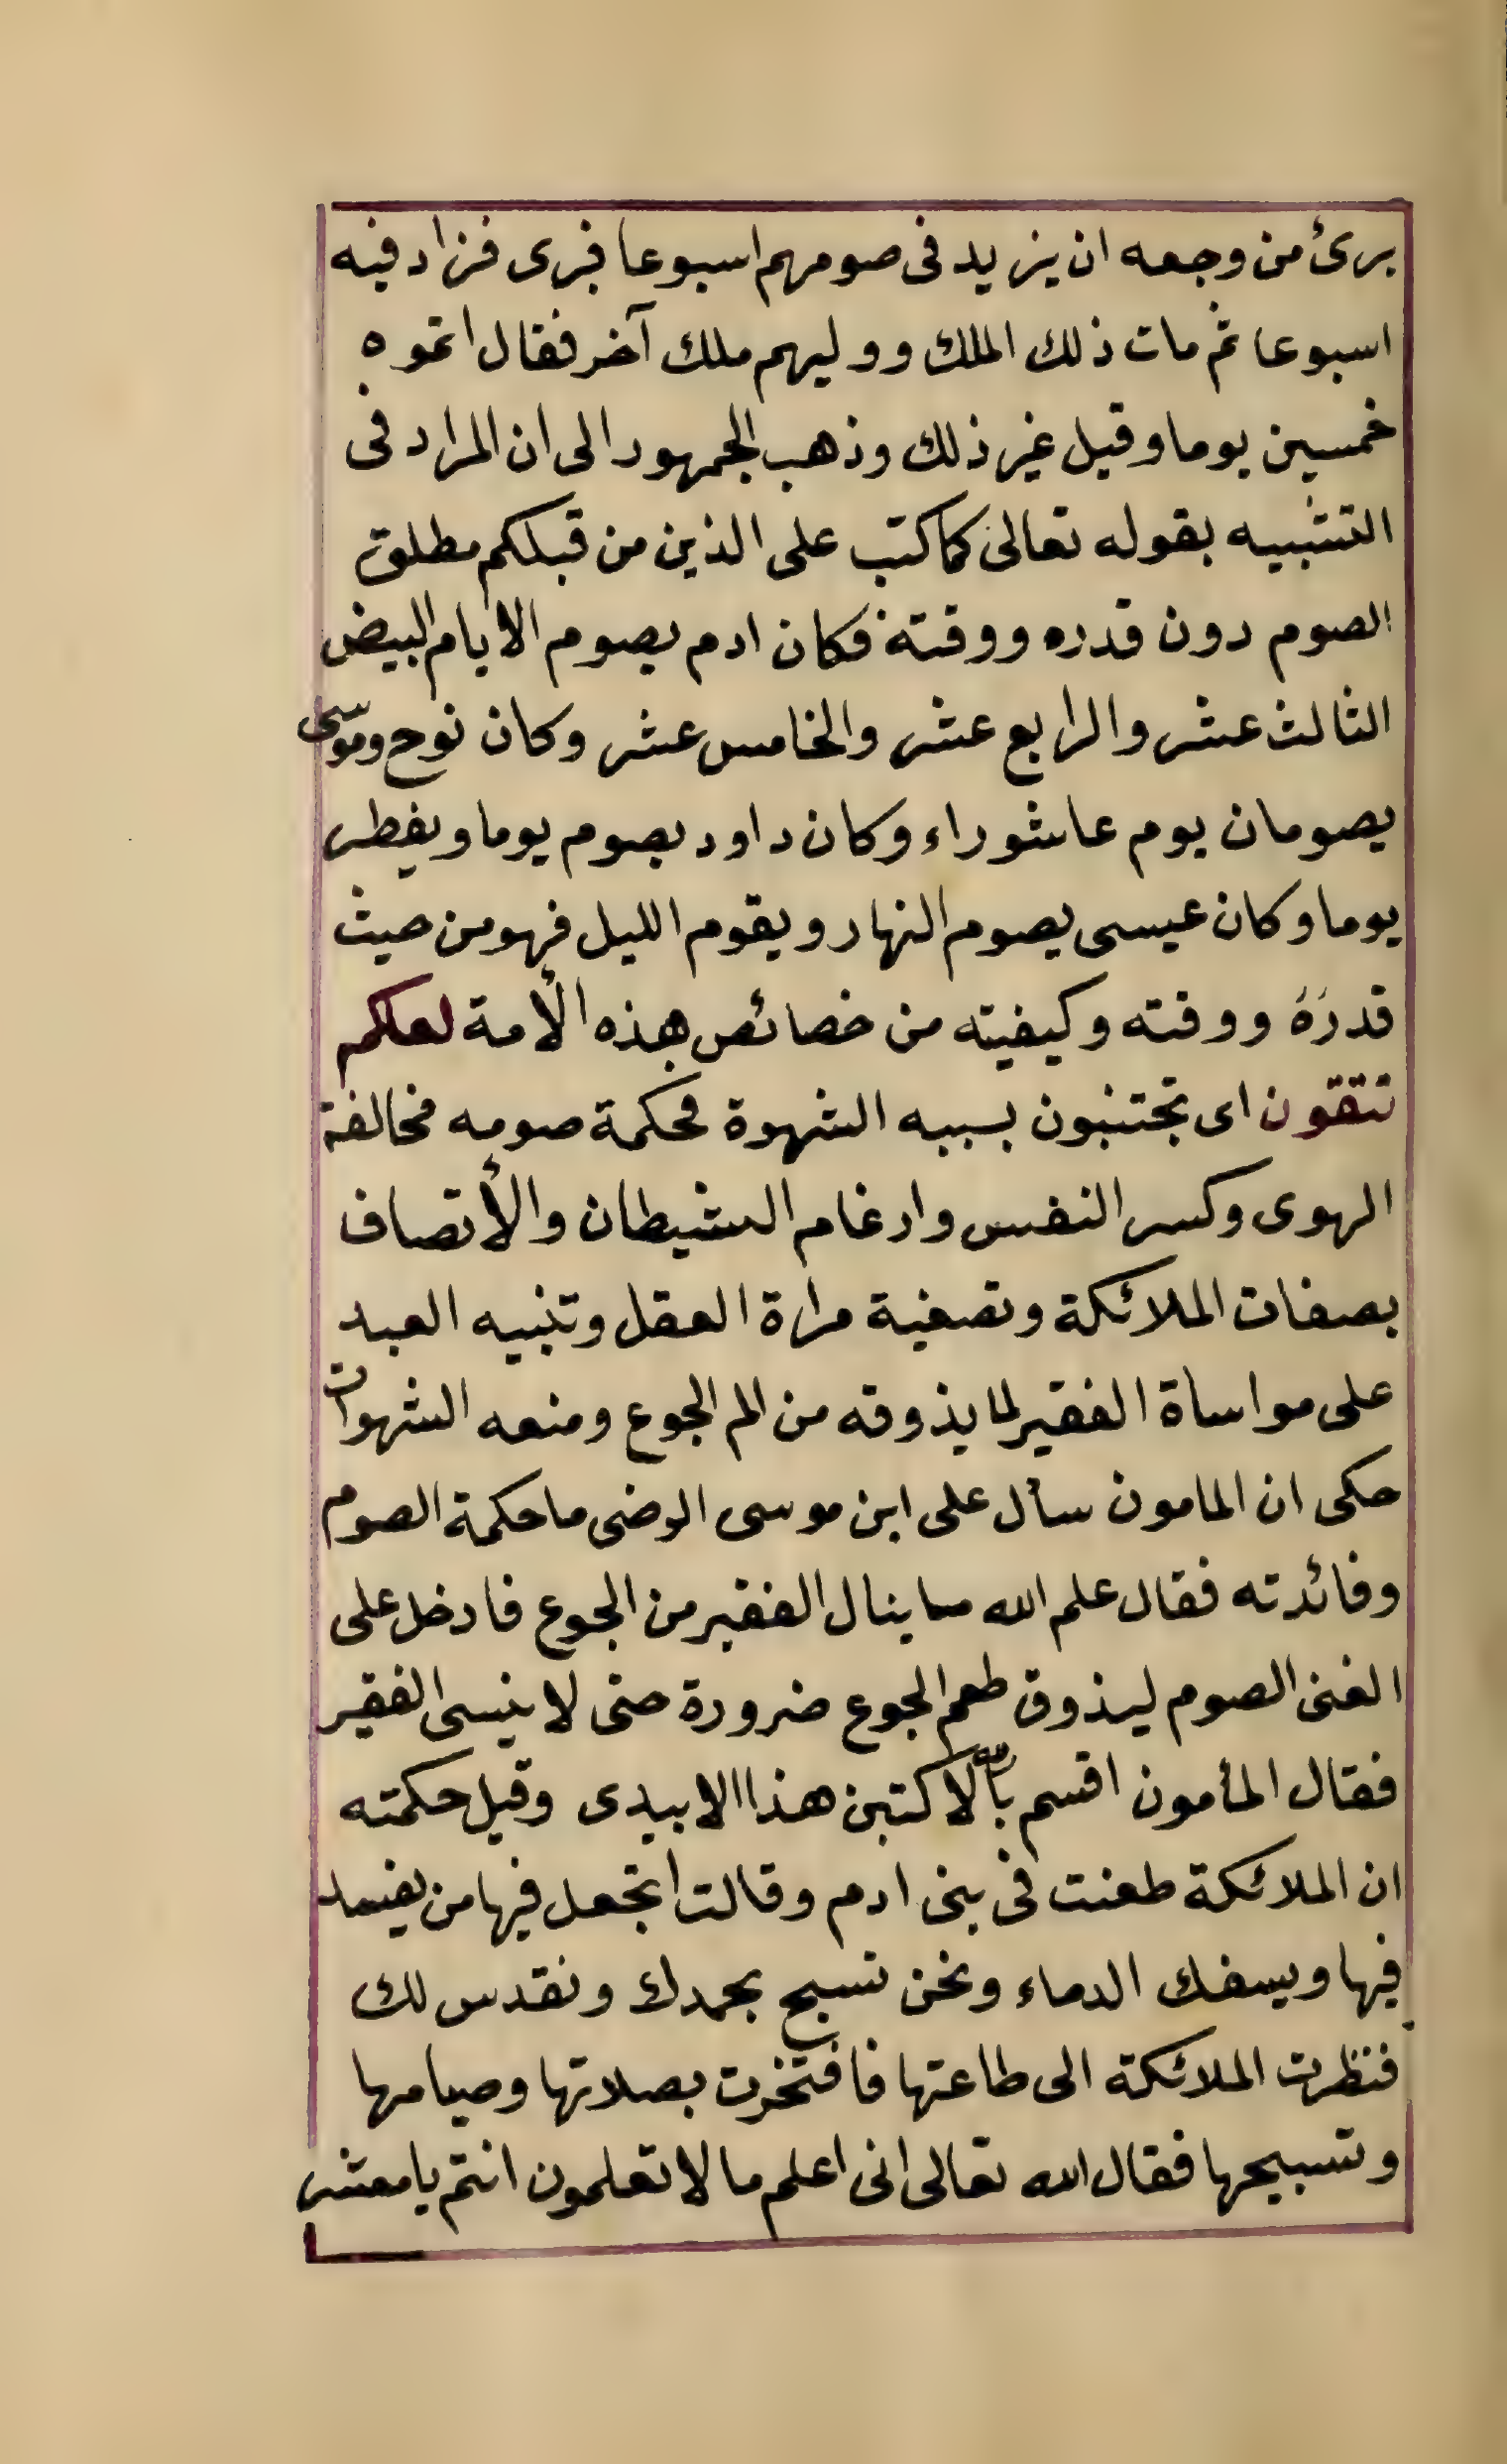 برئ من وجعه ان يزيد فى صومهم اسبوعا فبرى فزاد فيه
اسبوعا ثم مات ذلك الملك ووليهم ملك آخر فقال اتموه
خمسين يوما وقيل غير ذلك وذهب الجمهور الى ان المراد فى
التشبيه بقوله تعالى كما كتب على الذين من قبلكم مطلق
الصوم دون قدره ووقته فكان ادم يصوم الايام البيض
الثالث عشر والرابع عشر والخامس عشر وكان نوح وموسى
يصومان يوم عاشوراء وكان داود يصوم يوما ويفطر
يوما وكان عيسى يصوم النهار ويقوم الليل فهو من حيث
قدره ووقته وكيفيته من خصائص هذه الأمة لعلكم
تتقون اى تجتنبون بسببه الشهوة فحكمة صومه مخالفة
الهوى وكسر النفس وارغام الشيطان والأتصاف
بصفات الملائكة وتصفية مراة العقل وتنبيه العبد
على مواساة الفقير لما يذوقه من الم الجوع ومنعه الشهوات
حكى ان المامون سأل على ابن موسى الرضى ما حكمة الصوم
وفائدته فقال علم الله ما ينال الفقير من الجوع فادخل على
الغنى الصوم ليذوق طعم الجوع ضرورة حتى لا ينسى الفقير
فقال المأمون اقسم بالله لا كتبن هذا الا بيدى وقيل حكمته
ان الملائكة طعنت فى بنى ادم وقالت اتجعل فيها من يفسد
فيها ويسفك الدماء ونحن نسبح بحمدك ونقدس لك
فنظرت الملائكة الى طاعتها فافتخرت بصلاتها وصيامها
وتسبيحها فقال الله تعالى انى اعلم ما لا تعلمون انتم يا معشر